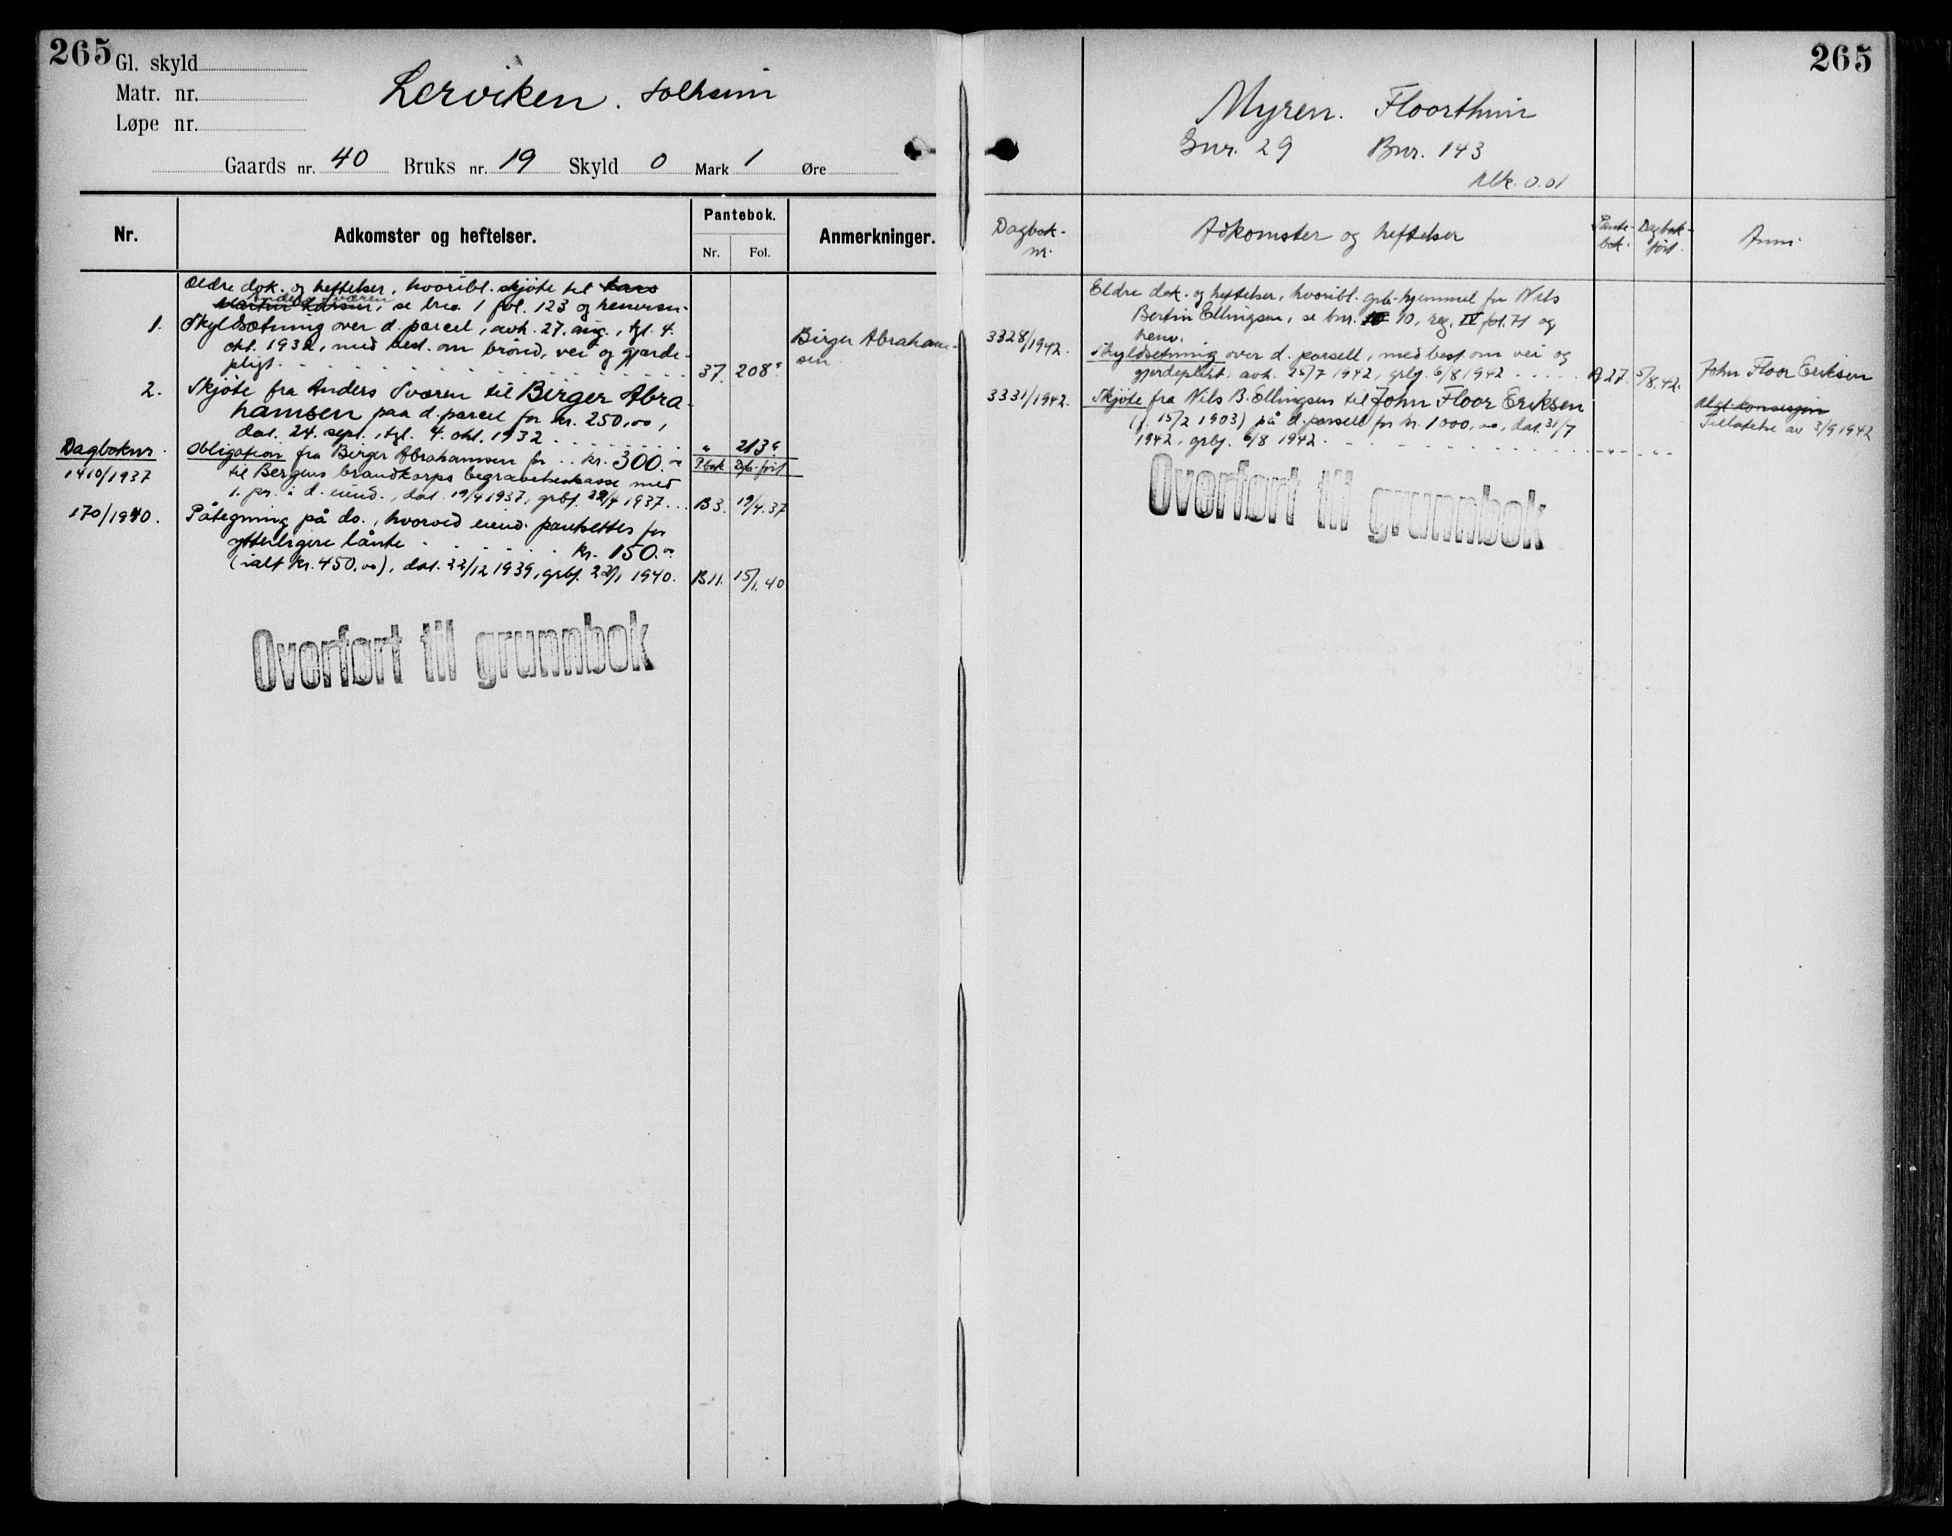 265
Gl. skyld
Matr. nr.
Løpe nr.
Lerviken. Solheim
Gaards nr. 40 Bruks nr. 19 Skyld 0 Mark 1 Øre
Nr. Adkomster og heftelser. Pantebok. Anmerkninger.
Nr. Fol.
Ældre dok. og heftelser, hvoribl. skjöte til Lars
Anders Sværen
Martin Larsen, se brno. 1 fol. 123 og henviser
1. Skyldsætning over d. parcel, avh. 27. aug., tgl. 4.
okt. 1932, med best. om brönd, vei og gjærde-
pligt. 37. 208
Birger Abraham-
sen
2. Skjöte fra Anders Sværen til Birger Abra-
hamsen paa d. parcel for kr. 250,00,
dat. 24. sept., tgl. 4. okt. 1932 " 213
Dagboknr. Obligation fra Birger Abrahamsen for kr. 300.00 P.bok Db. ført
1410/1937 til Bergens brandkorps begravelseskasse med
1. pr. i d. eiend., dat. 19/4 1937, grbf. 22/4 1937 B3. 19/4.37
170/1940. Påtegning på do., hvorved eiend. pantsettes for
ytterligere lånte kr. 150.00
(ialt kr. 450,00), dat. 22/12 1939, grbf. 22/1 1940. B11. 15/1.40
Overført til grunnbok
265
Myren. Floortheim
Gnr. 29 Bnr. 143
Mk. 0.01
Dagbok-
nr. Adkomster og heftelser Pante-
bok. Dagbok-
ført. Anm.
Eldre dok. og heftelser, hvoribl. grb. hjemmel for Nils
Bertin Ellingsen, se bnr. 10, reg. IV fol. 71 og
henv.
3328/1942. Skyldsetning over d. parsell, med best. om vei og
gjerdeplikt, avh. 25/7 1942, grbf. 6/8 1942 A27. 5/8.42. John Floor Eriksen
3331/1942. Skjöte fra Nils B. Ellingsen til John Floor Eriksen
(f. 15/2 1903) på d. parsell for kr. 1000,00, dat. 31/7
1942, grbf. 6/8 1942 " "
Utgl. konsesjon
Tillatelse av 3/9 1942
Overført til grunnbok